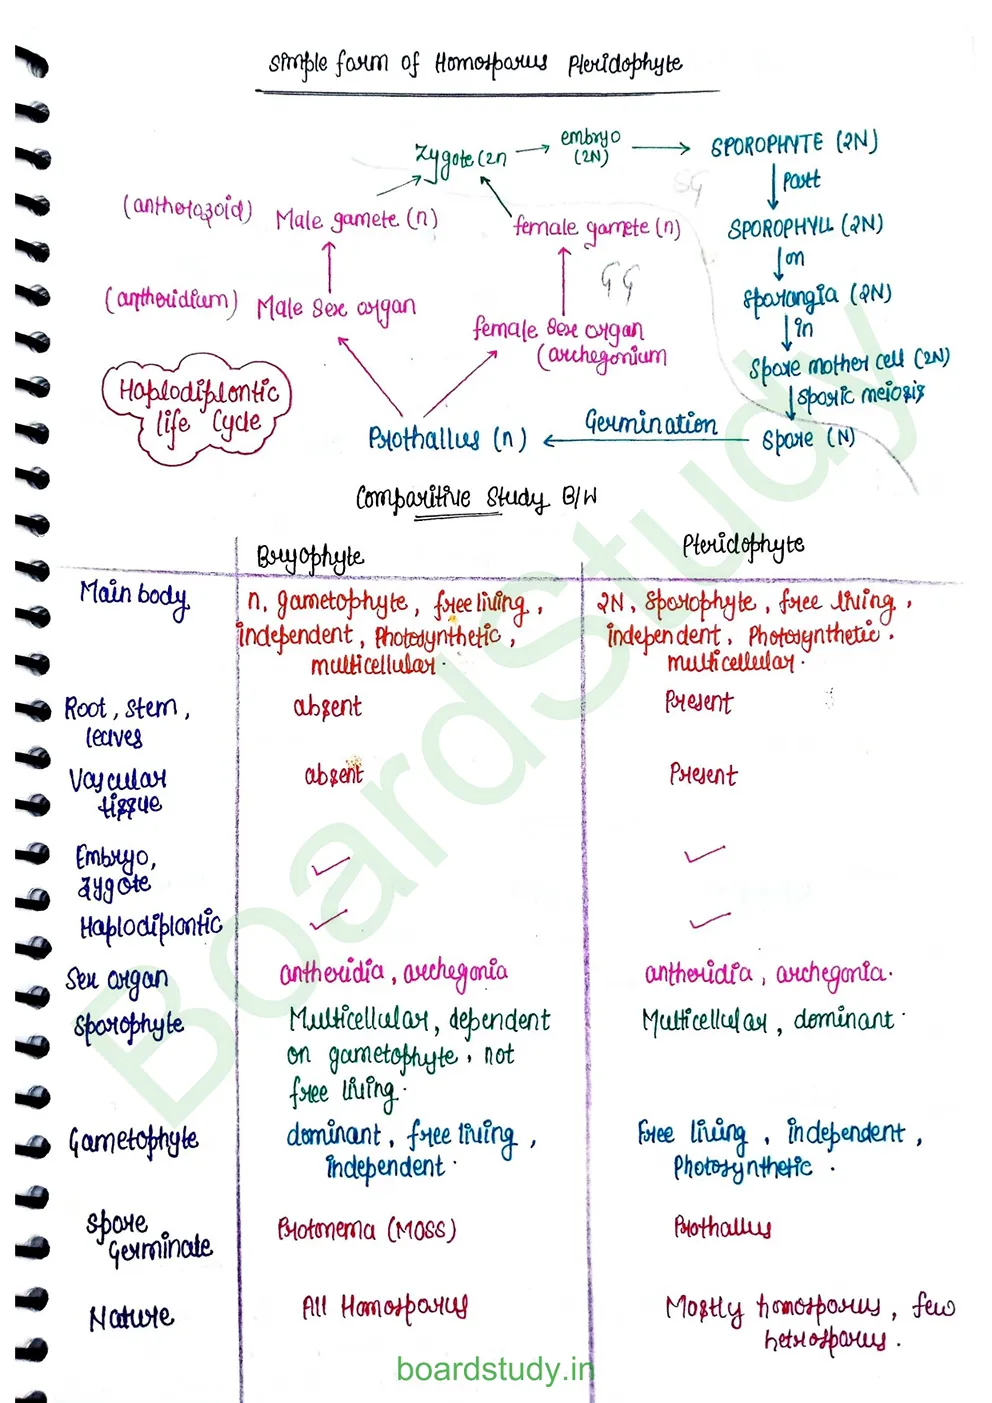 Simple form of Homosporus Pteridophyte
Zygote (2n → embryo (2N) → SPOROPHYTE (2N)
↓ Part
(antherozoid) Male gamete (n) female gamete (n) SPOROPHYLL (2N)
↓ on
SG
GG
(antheridium) Male Sex organ Sporangia (2N)
↓ in
female Sex organ
(archegonium
Spore mother cell (2N)
↓ Sporic meiosis
Haplodiplontic
life Cycle
Prothallus (n) ← Germination Spore (N)
Comparitive Study B/W
Bryophyte Pteridophyte
Main body n, gametophyte, free living, 2N, Sporophyte, free living,
independent, Photosynthetic, independent, Photosynthetic.
multicellular. multicellular.
Root, Stem, absent Present
leaves
Vascular absent Present
tissue
Embryo, ✓ ✓
zygote
Haplodiplontic ✓ ✓
Sex organ antheridia, archegonia antheridia, archegonia.
Sporophyte Multicellular, dependent Multicellular, dominant.
on gametophyte, not
free living.
Gametophyte dominant, free living, Free living, independent,
independent. Photosynthetic.
Spore Protonema (MOSS) Prothallus
Germinate
Nature All Homosporus Mostly homosporus, few
hetrosporus.
BoardStudy
boardstudy.in